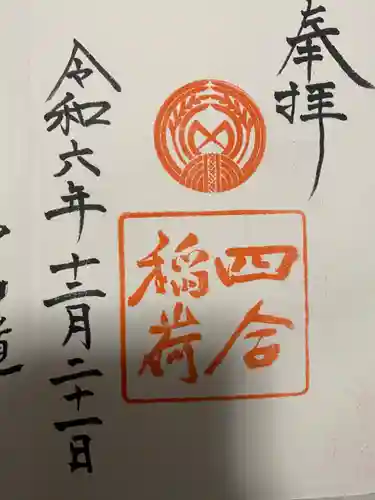 奉拝
四合
稲荷
令和六年十二月二十一日
道